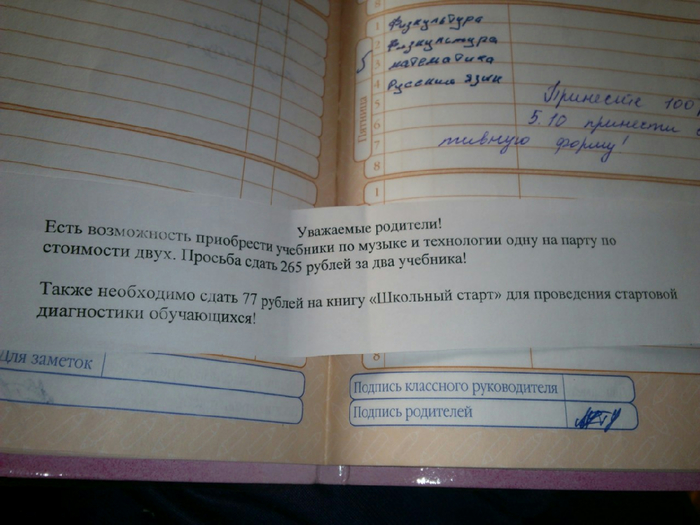 8
1 физкультура
2 физкультура
5
3 математика
4 Русский язик
5
Принесите 100
6
5.10 принести
7
тивную форму!
8
Пятница
1
Уважаемые родители!
Есть возможность приобрести учебники по музыке и технологии одну на парту по
стоимости двух. Просьба сдать 265 рублей за два учебника!
Также необходимо сдать 77 рублей на книгу «Школьный старт» для проведения стартовой
диагностики обучающихся!
8
Для заметок
Подпись классного руководителя
Подпись родителей